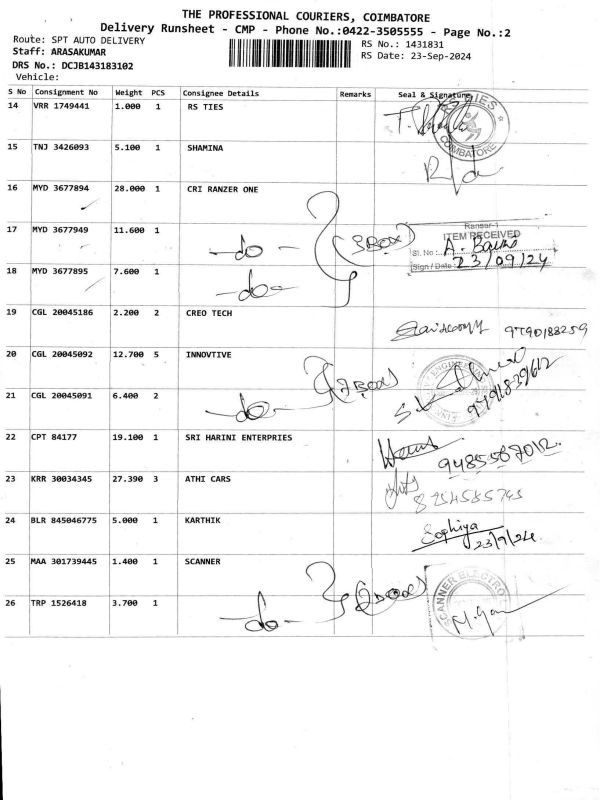 THE PROFESSIONAL COURIERS, COIMBATORE
Delivery Runsheet - CMP - Phone No.:0422-3505555 - Page No.:2
Route: SPT AUTO DELIVERY
RS No.: 1431831
Staff: ARASAKUMAR
RS Date: 23-Sep-2024
DRS No.: DCJB143183102
Vehicle:
S No Consignment No Weight PCS Consignee Details Remarks Seal & Signature
14 VRR 1749441 1.000 1 RS TIES
COIMBATORE
15 TNJ 3426093 5.100 1 SHAMINA
16 MYD 3677894 28.000 1 CRI RANZER ONE
17 MYD 3677949 11.600 1 -do- (3 Box)
Ranser-1
ITEM RECEIVED
Sl. No :
Sign / Date 23/09/24
18 MYD 3677895 7.600 1 -do-
19 CGL 20045186 2.200 2 CREO TECH 9790188259
20 CGL 20045092 12.700 5 INNOVTIVE
(7 Box) 9791839612
21 CGL 20045091 6.400 2 -do-
22 CPT 84177 19.100 1 SRI HARINI ENTERPRIES
9485587012.
23 KRR 30034345 27.390 3 ATHI CARS
8254585745
24 BLR 845046775 5.000 1 KARTHIK Sophiya
23/9/24.
25 MAA 301739445 1.400 1 SCANNER
(2 Box) SCANNER ELECTRO
26 TRP 1526418 3.700 1 -do-